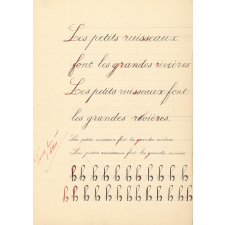 Les petits ruisseaux
font les grandes rivières
Les petits ruisseaux font
les grandes rivières.
Les petits ruisseaux font les grandes rivières
Les petits ruisseaux font les grandes rivières.